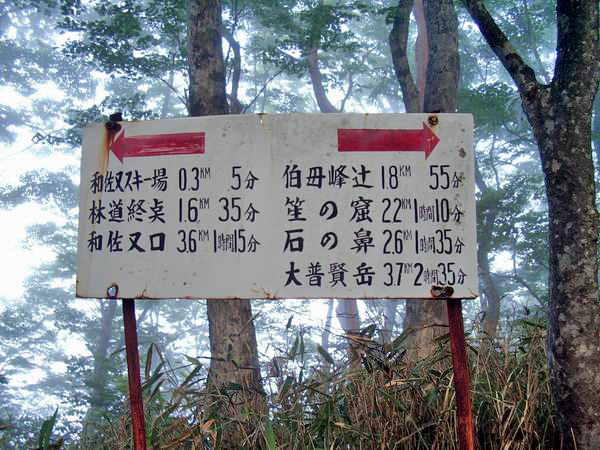 和佐又スキー場 0.3KM 5分
林道終点 1.6KM 35分
和佐又口 3.6KM 1時間15分
伯母峰辻 1.8KM 55分
笙の窟 2.2KM 1時間10分
石の鼻 2.6KM 1時間35分
大普賢岳 3.7KM 2時間35分